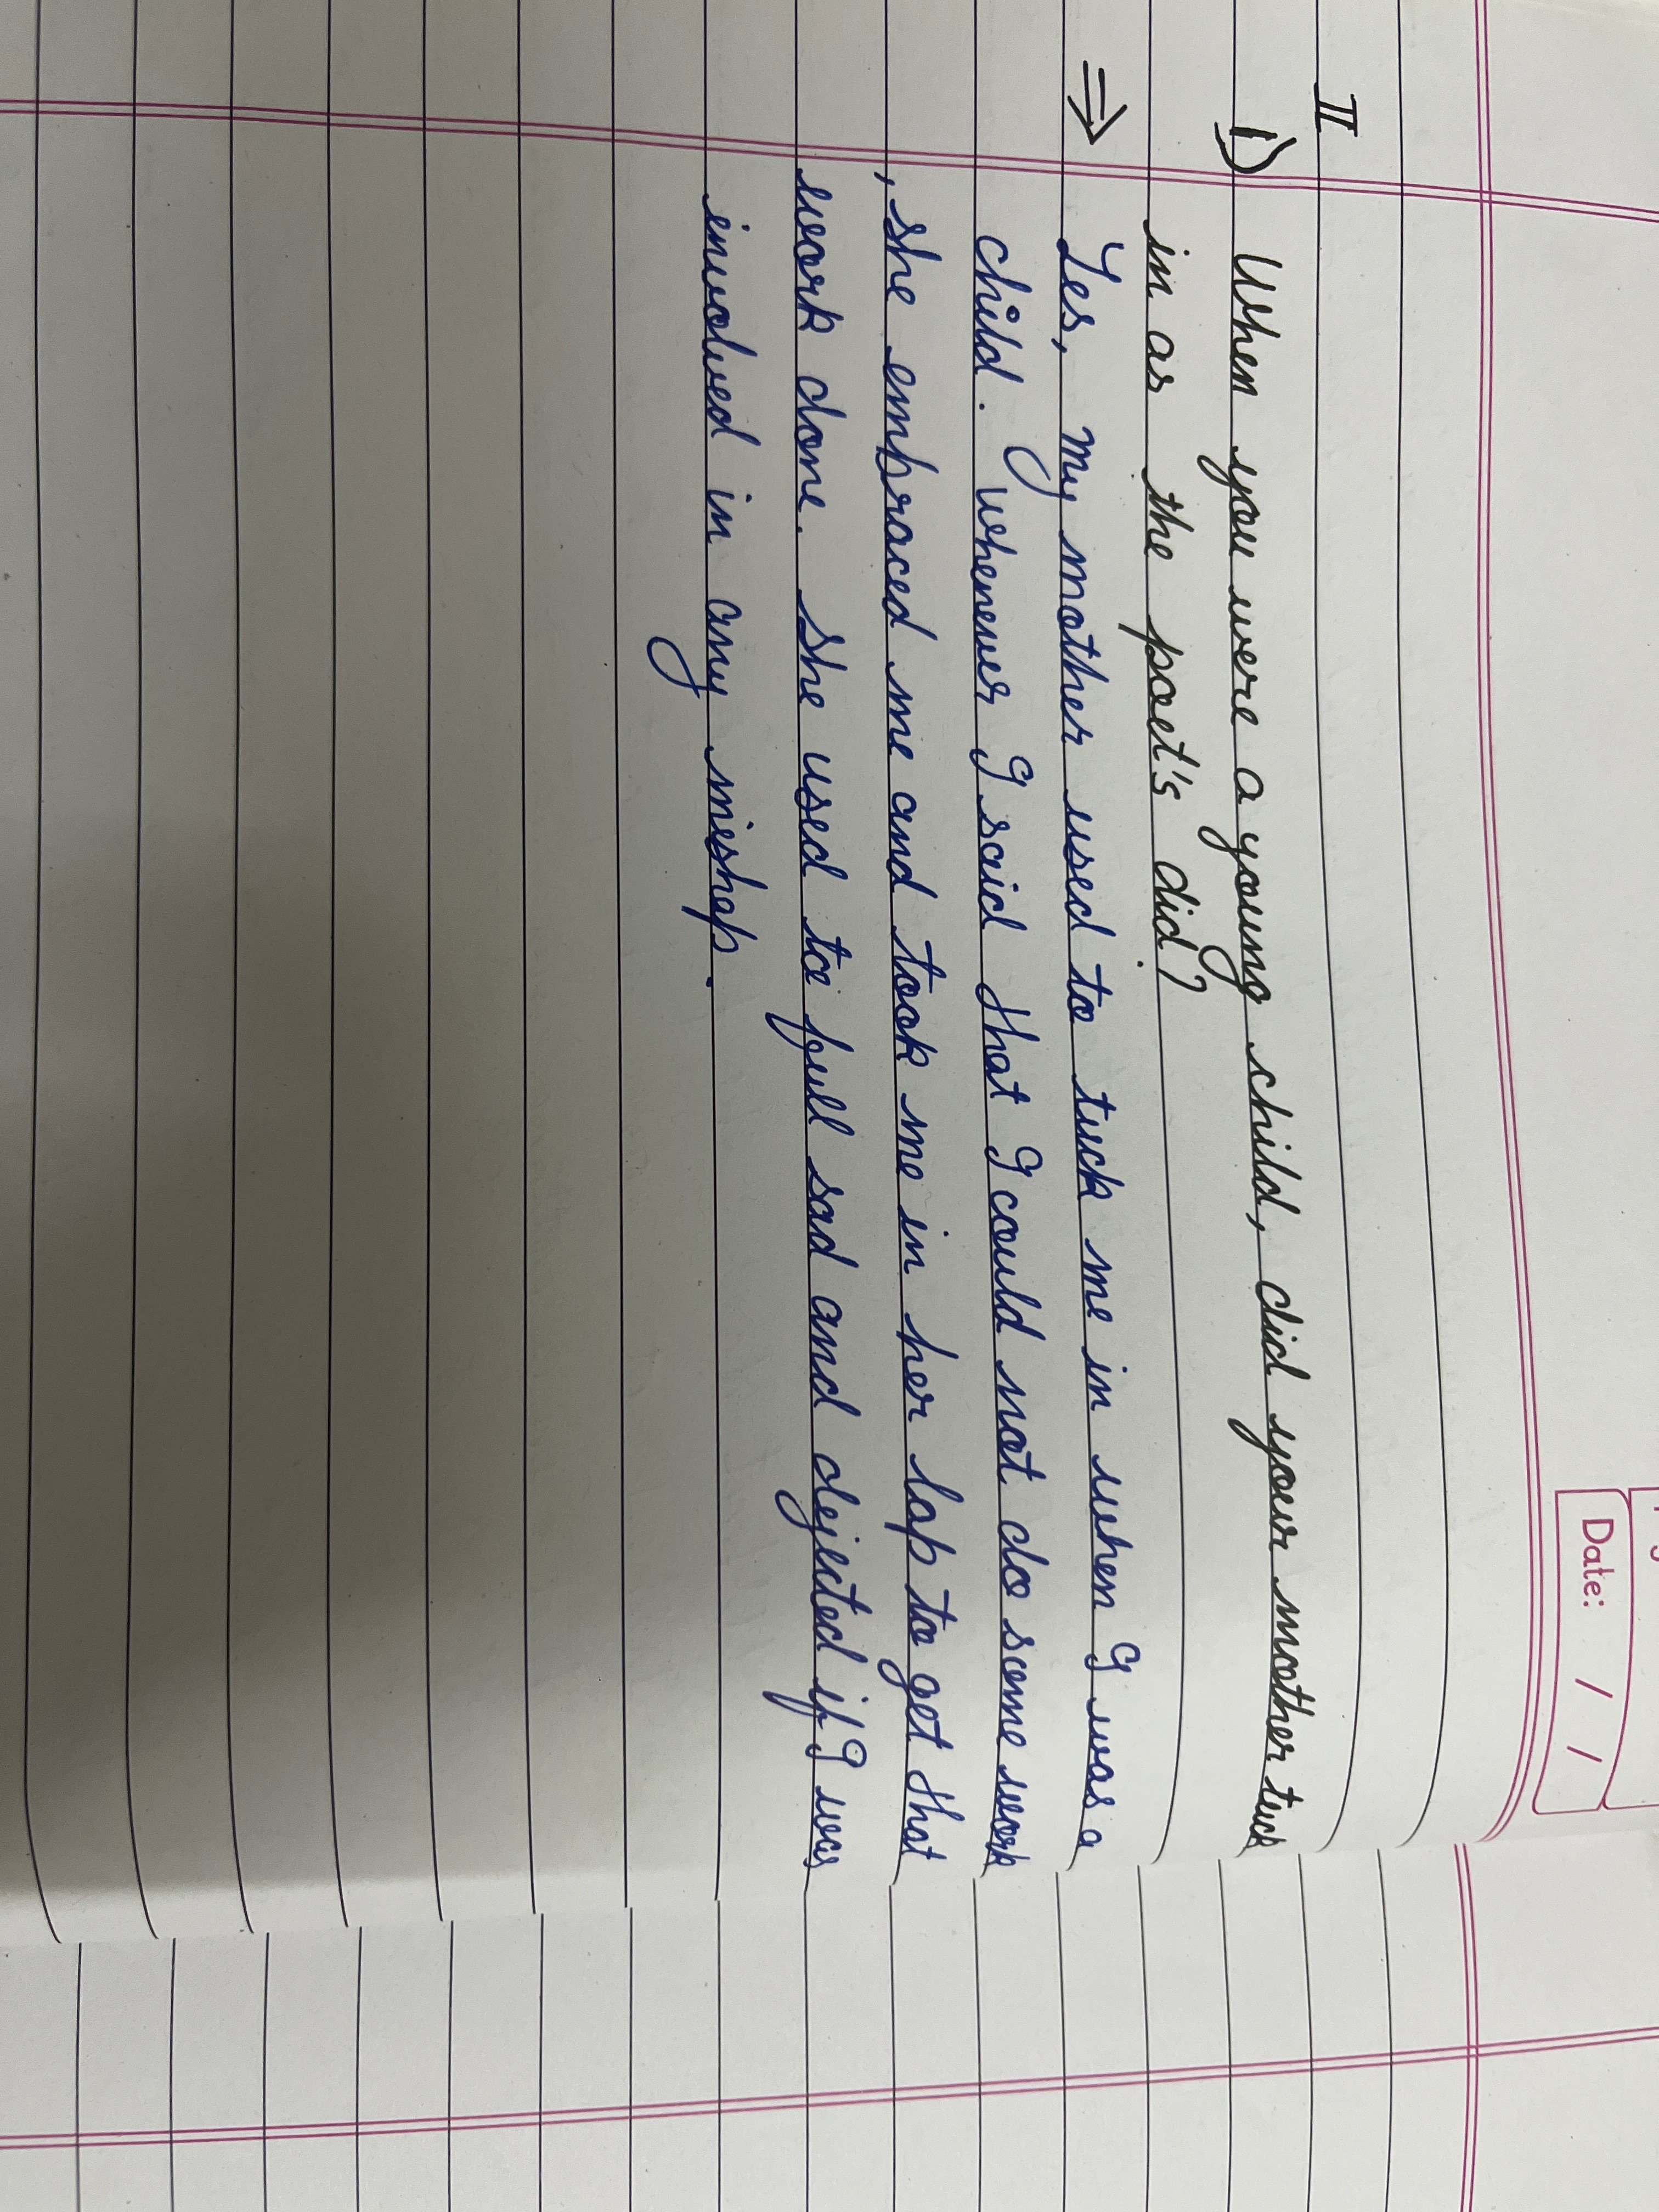 Date: / /
II
1) When you were a young child, did your mother tuck
in as the poet's did?
⇒ Yes, my mother used to tuck me in when I was a
child. Whenever I said that I could not do some work
, she embraced me and took me in her lap to get that
work done. She used to full sad and dejected if I was
involved in any mishap.